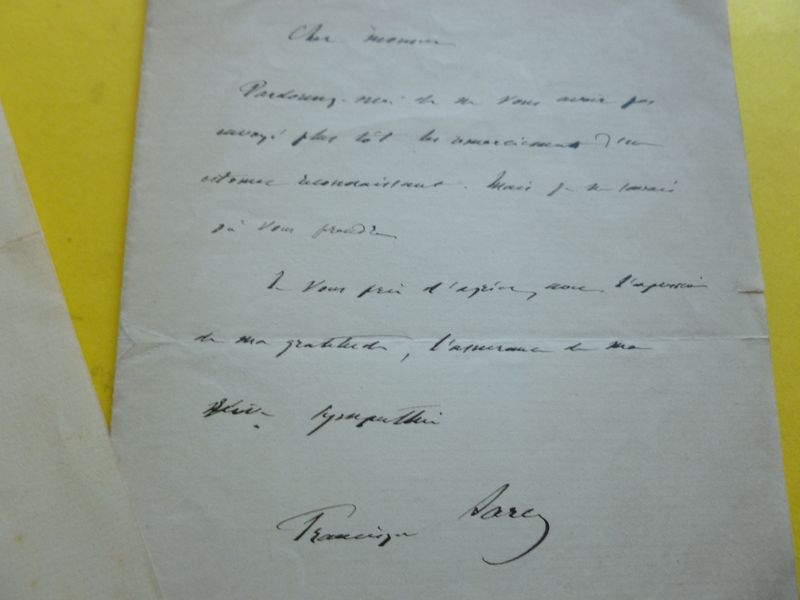 Cher monsieur
Pardonnez-moi de ne vous avoir pas
envoyé plus tôt les remerciements d'un
estomac reconnaissant. Mais je ne savais
où vous prendre
Je vous prie d'agréer, avec l'expression
de ma gratitude, l'assurance de ma
sympathie
Francisque Sarcey